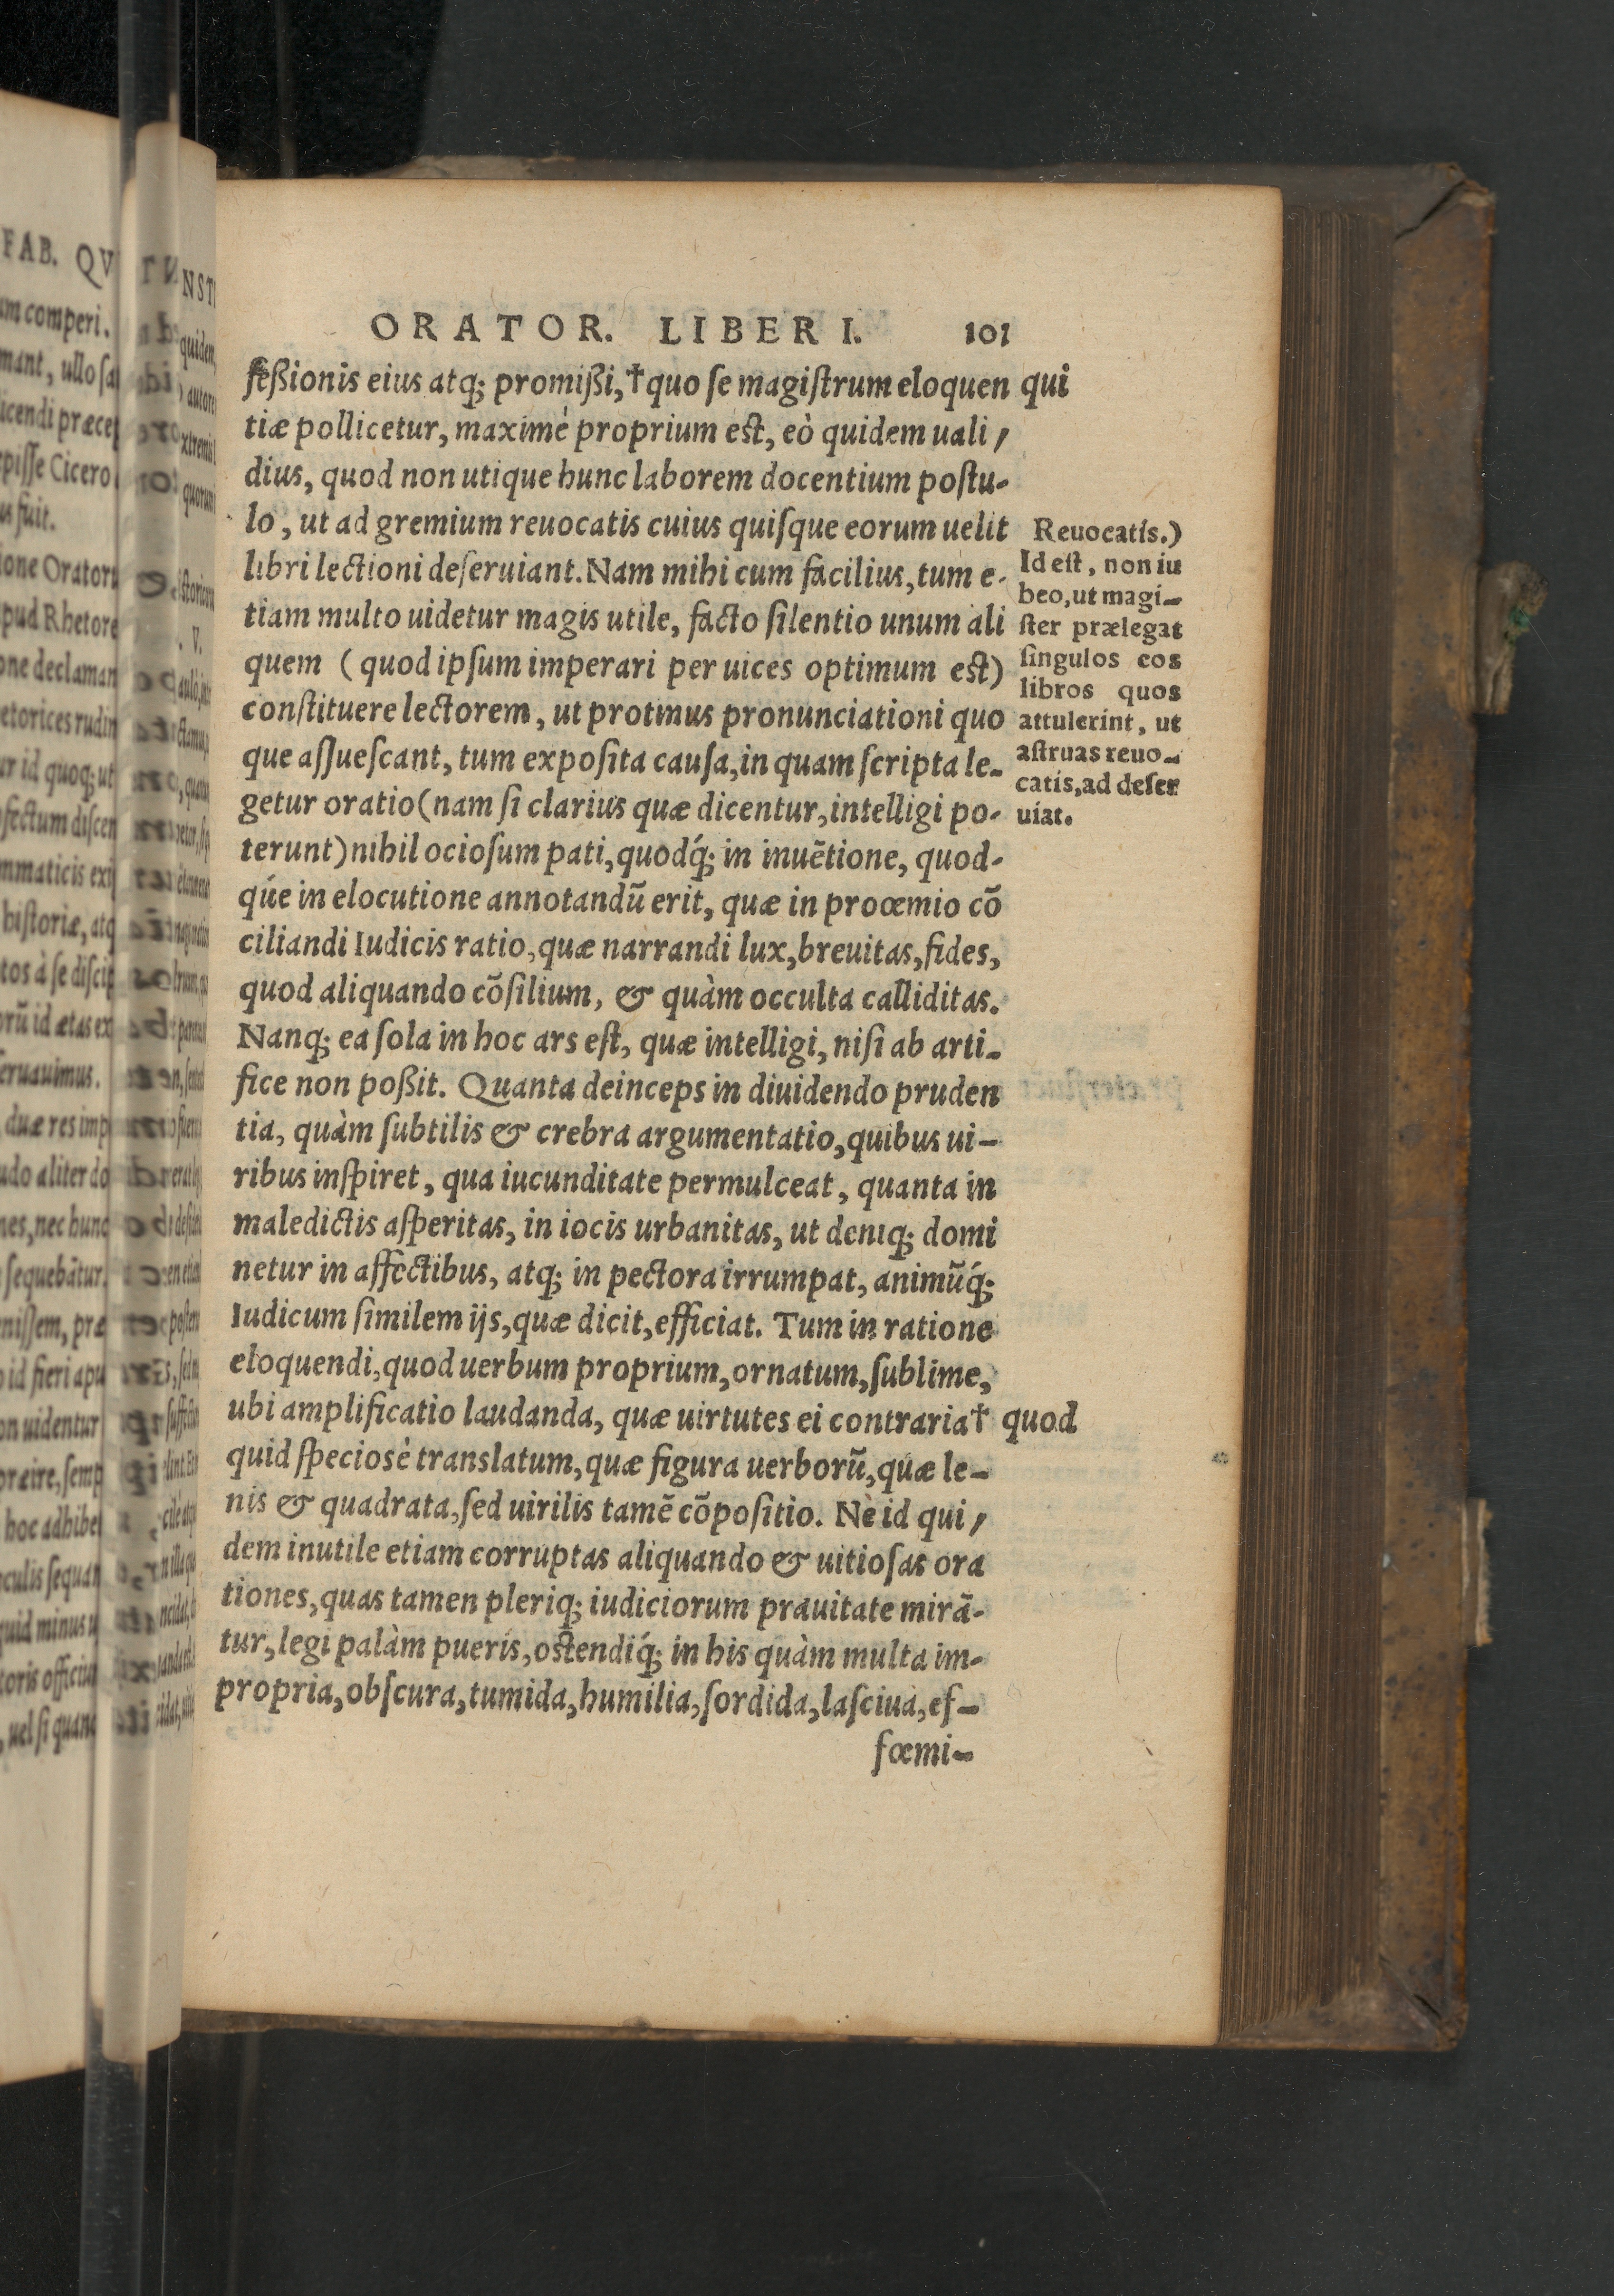 ORATOR. LIBER I. 101
feßionis eius atq; promißi, † quo ſe magiſtrum eloquen
tiæ pollicetur, maximè proprium eſt, eò quidem uali
dius, quod non utique hunc laborem docentium poſtu-
lo, ut ad gremium reuocatis cuius quiſque eorum uelit
libri lectioni deſeruiant. Nam mihi cum facilius, tum e-
tiam multo uidetur magis utile, facto ſilentio unum ali
quem ( quod ipſum imperari per uices optimum eſt)
conſtituere lectorem, ut protinus pronunciationi quo
que aſſueſcant, tum expoſita cauſa, in quam ſcripta le-
getur oratio (nam ſi clarius quæ dicentur, intelligi po-
terunt) nihil ocioſum pati, quodq́; in inuẽtione, quod-
qúe in elocutione annotandũ erit, quæ in proœmio cõ
ciliandi Iudicis ratio, quæ narrandi lux, breuitas, fides,
quod aliquando cõſilium, & quàm occulta calliditas.
Nanq; ea ſola in hoc ars eſt, quæ intelligi, niſi ab arti-
fice non poßit. Quanta deinceps in diuidendo pruden
tia, quàm ſubtilis & crebra argumentatio, quibus ui-
ribus inſpiret, qua iucunditate permulceat, quanta in
maledictis aſperitas, in iocis urbanitas, ut deniq; domi
netur in affectibus, atq; in pectora irrumpat, animũq́;
Iudicum ſimilem ijs, quæ dicit, efficiat. Tum in ratione
eloquendi, quod uerbum proprium, ornatum, ſublime,
ubi amplificatio laudanda, quæ uirtutes ei contraria †
quid ſpeciosè translatum, quæ figura uerborũ, quæ le-
nis & quadrata, ſed uirilis tamẽ cõpoſitio. Ne id qui
dem inutile etiam corruptas aliquando & uitioſas ora
tiones, quas tamen pleriq; iudiciorum prauitate mirã-
tur, legi palàm pueris, oſtendiq́; in his quàm multa im-
propria, obſcura, tumida, humilia, ſordida, laſciua, ef-
fœmi-
qui
Reuocatis.)
Id eſt, non iu
beo, ut magi-
ſter prælegat
ſingulos eos
libros quos
attulerint, ut
aſtruas reuo-
catis, ad deſer
uiat.
quod
FAB. QV
comperi.
ullo
icendi
Cicero
fuit.
apud
id quoq; ut
hiſtoriæ, atq
à ſe
id ætas
duæ res
aliter
nec hunc
ſequebãtur.
id fieri
uidentur
hoc
quid minus
uel ſi